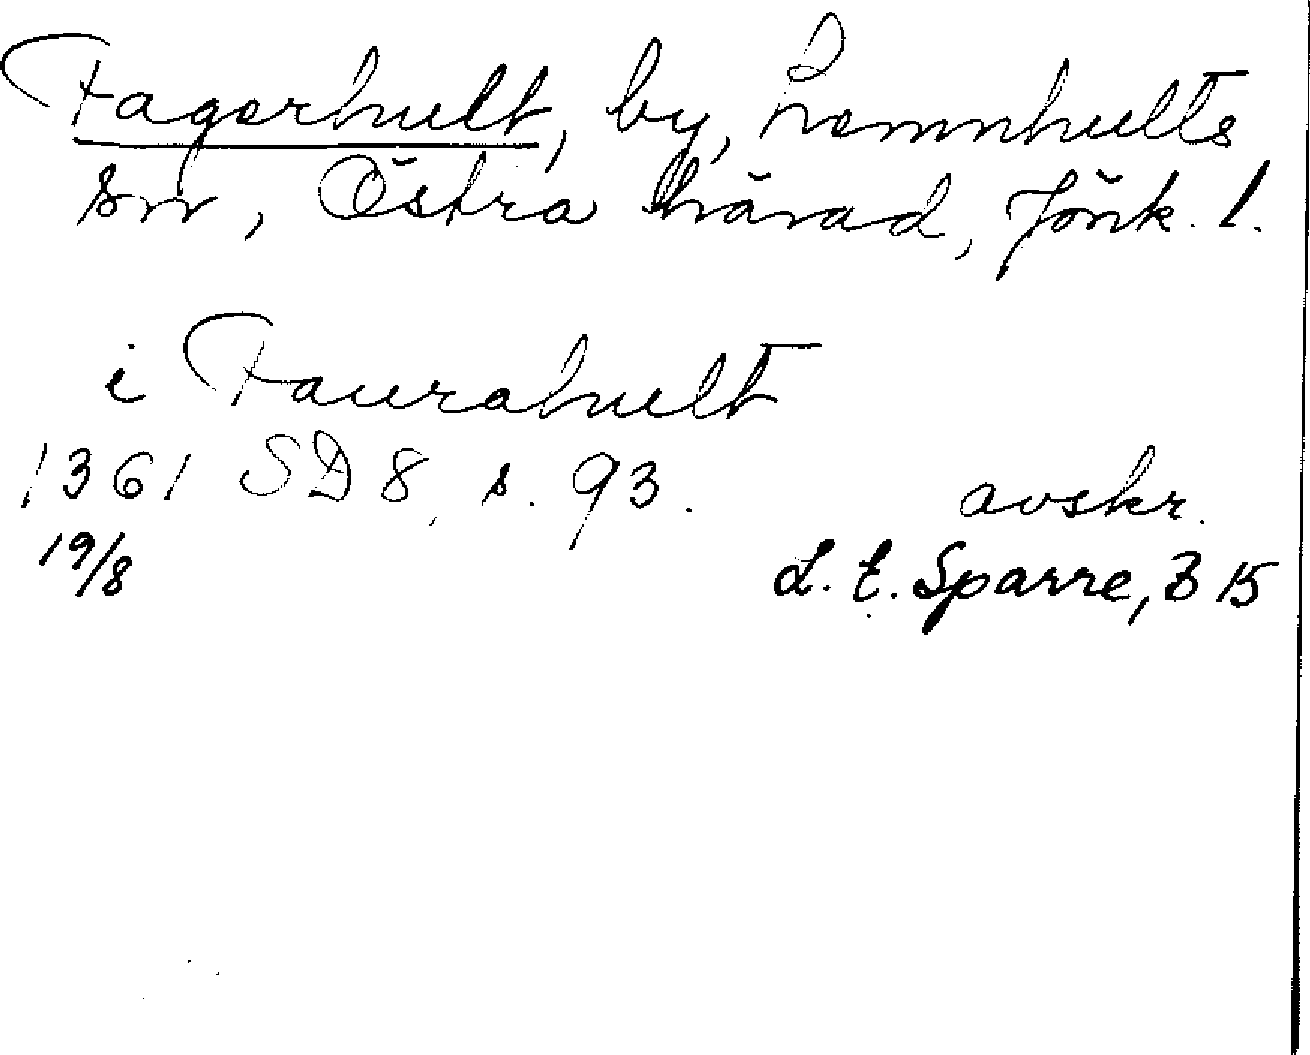 Fagerhult, by, Lemnhults
sn, Östra härad, Jönk. l.
i Faurahult
1361 SD 8, s. 93. avskr.
19/8 L. E. Sparre, B 15